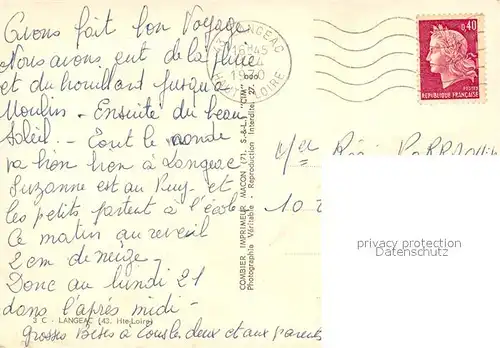 Avons fait bon Voyage
Nous avons eut de la pluie
et du brouillard jusqu'a
Moulin - Ensuite du beau
Soleil - Tout le monde
va bon bon à Langeac
Suzanne est au Puy - et
les petits partent à l'école
Ce matin au reveil
2 cm de neige -
Donc au lundi 21
dans l'après midi -
3 C - LANGEAC (43. Hte-Loire)
Grosses Bises à tous les deux et aux parents
COMBIER IMPRIMEUR MACON (71, S.-&-L.) "CIM"
Photographie Véritable - Reproduction Interdite
43 LANGEAC
16H45
HAUTE-LOIRE
0,40
POSTES
REPUBLIQUE FRANÇAISE
10
privacy protection
Datenschutz